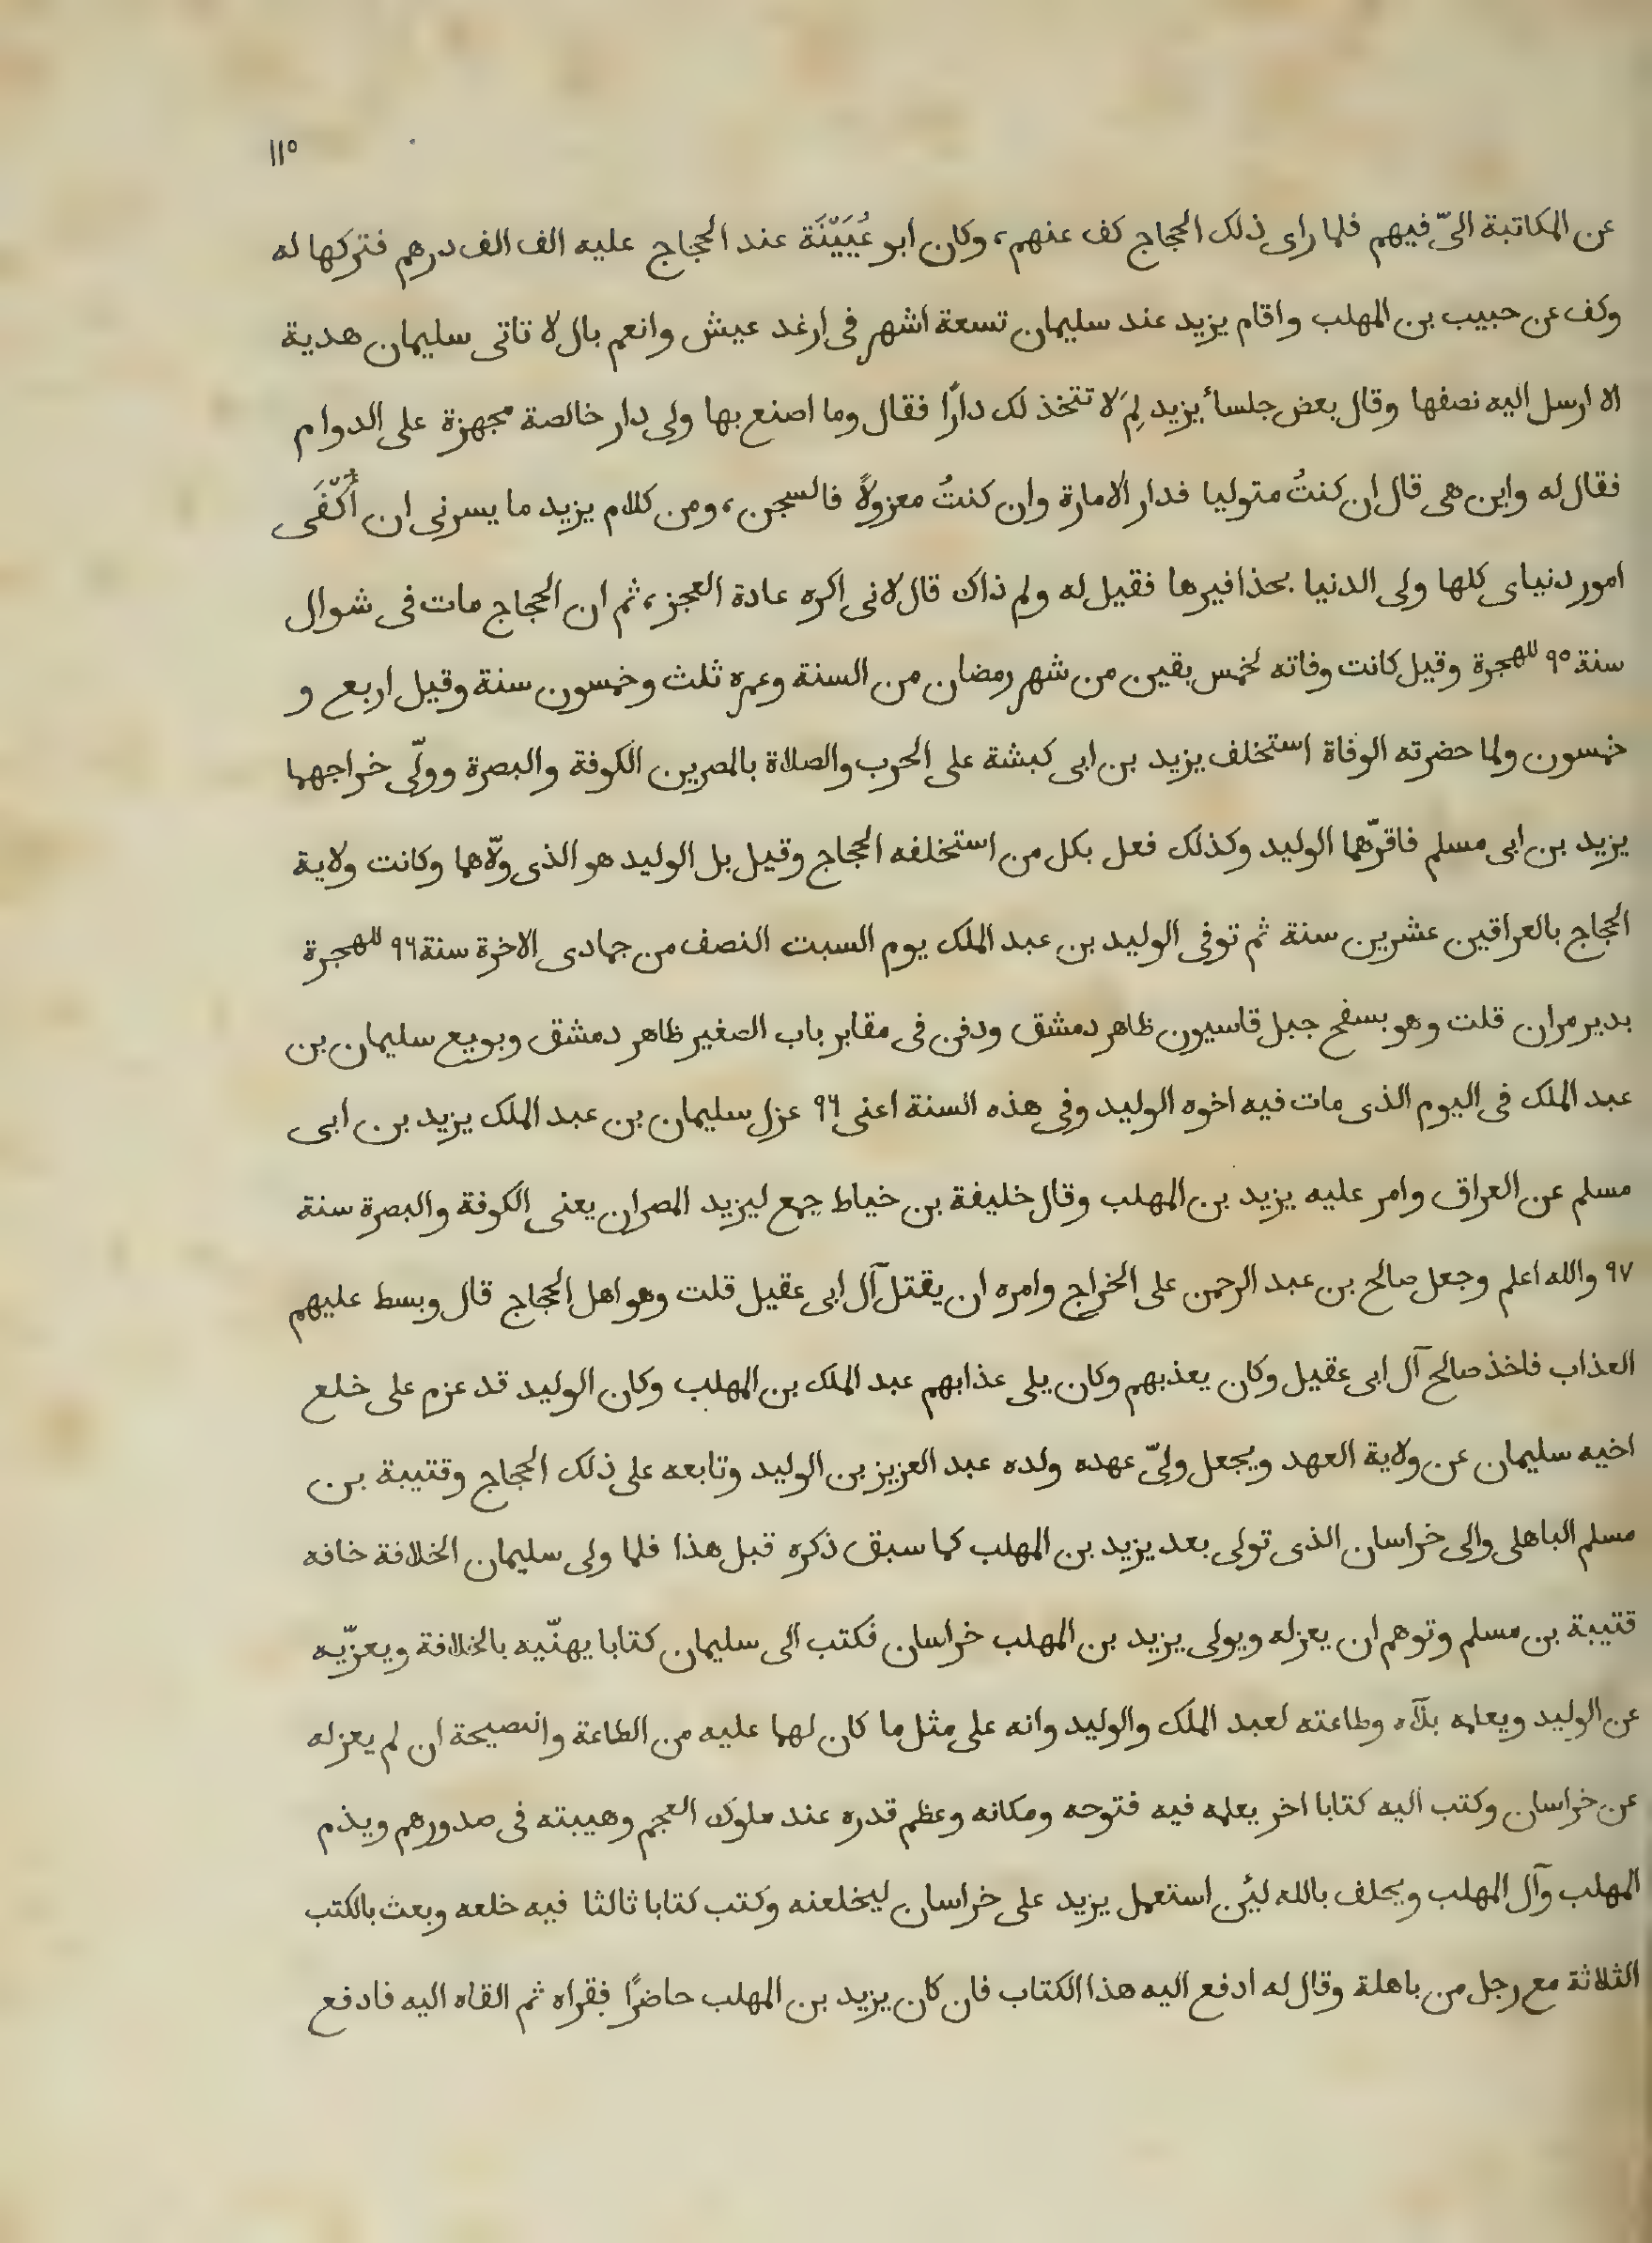 ١١٥
عن المكاتبة الىّ فيهم فلما راى ذلك الحجاج كف عنهم، وكان ابو عُيَيْنَة عند الحجاج عليه الف الف درهم فتركها له
وكف عن حبيب بن المهلب واقام يزيد عند سليمان تسعة اشهر فى ارغد عيش وانعم بال لا تاتى سليمان هدية
الا ارسل اليه نصفها وقال بعض جلساء يزيد لِمَ لا تتخذ لك دارًا فقال وما اصنع بها ولى دار خالصة مجهزة على الدوام
فقال له واين هى قال ان كنتُ متوليا فدار الامارة وان كنتُ معزولاً فالسجن، ومن كلام يزيد ما يسرنى ان أُكْفَى
امور دنياى كلها ولى الدنيا بحذافيرها فقيل له ولم ذاك قال لانى اكره عادة العجز، ثم ان الحجاج مات فى شوال
سنة ٩٥ للهجرة وقيل كانت وفاته لخمس بقين من شهر رمضان من السنة وعمره ثلث وخمسون سنة وقيل اربع و
خمسون ولما حضرته الوفاة استخلف يزيد بن ابى كبشة على الحرب والصلاة بالمصرين الكوفة والبصرة وولّى خراجهما
يزيد بن ابى مسلم فاقرّهما الوليد وكذلك فعل بكل من استخلفه الحجاج وقيل بل الوليد هو الذى ولّاهما وكانت ولاية
الحجاج بالعراقين عشرين سنة ثم توفى الوليد بن عبد الملك يوم السبت النصف من جمادى الاخرة سنة ٩٦ للهجرة
بدير مران قلت وهو بسفح جبل قاسيون ظاهر دمشق ودفن فى مقابر باب الصغير ظاهر دمشق وبويع سليمان بن
عبد الملك فى اليوم الذى مات فيه اخوه الوليد وفى هذه السنة اعنى ٩٦ عزل سليمان بن عبد الملك يزيد بن ابى
مسلم عن العراق وامر عليه يزيد بن المهلب وقال خليفة بن خياط جمع ليزيد المصران يعنى الكوفة والبصرة سنة
٩٧ والله اعلم وجعل صالح بن عبد الرحمن على الخراج وامره ان يقتل آل ابى عقيل قلت وهو اهل الحجاج قال وبسط عليهم
العذاب فاخذ صالح آل ابى عقيل وكان يعذبهم وكان يلى عذابهم عبد الملك بن المهلب وكان الوليد قد عزم على خلع
اخيه سليمان عن ولاية العهد ويجعل ولىّ عهده ولده عبد العزيز بن الوليد وتابعه على ذلك الحجاج وقتيبة بن
مسلم الباهلى والى خراسان الذى تولى بعد يزيد بن المهلب كما سبق ذكره قبل هذا فلما ولى سليمان الخلافة خافه
قتيبة بن مسلم وتوهم ان يعزله ويولى يزيد بن المهلب خراسان فكتب الى سليمان كتابا يهنّيه بالخلافة ويعزّيه
عن الوليد ويعلمه بلآه وطاعته لعبد الملك والوليد وانه على مثل ما كان لهما عليه من الطاعة والنصيحة ان لم يعزله
عن خراسان وكتب اليه كتابا اخر يعلمه فيه فتوحه ومكانه وعظم قدره عند ملوك العجم وهيبته فى صدورهم ويذم
المهلب وآل المهلب ويحلف بالله لئن استعمل يزيد على خراسان ليخلعنه وكتب كتابا ثالثا فيه خلعه وبعث بالكتب
الثلاثة مع رجل من باهلة وقال له ادفع اليه هذا الكتاب فان كان يزيد بن المهلب حاضرًا فقراه ثم القاه اليه فادفع